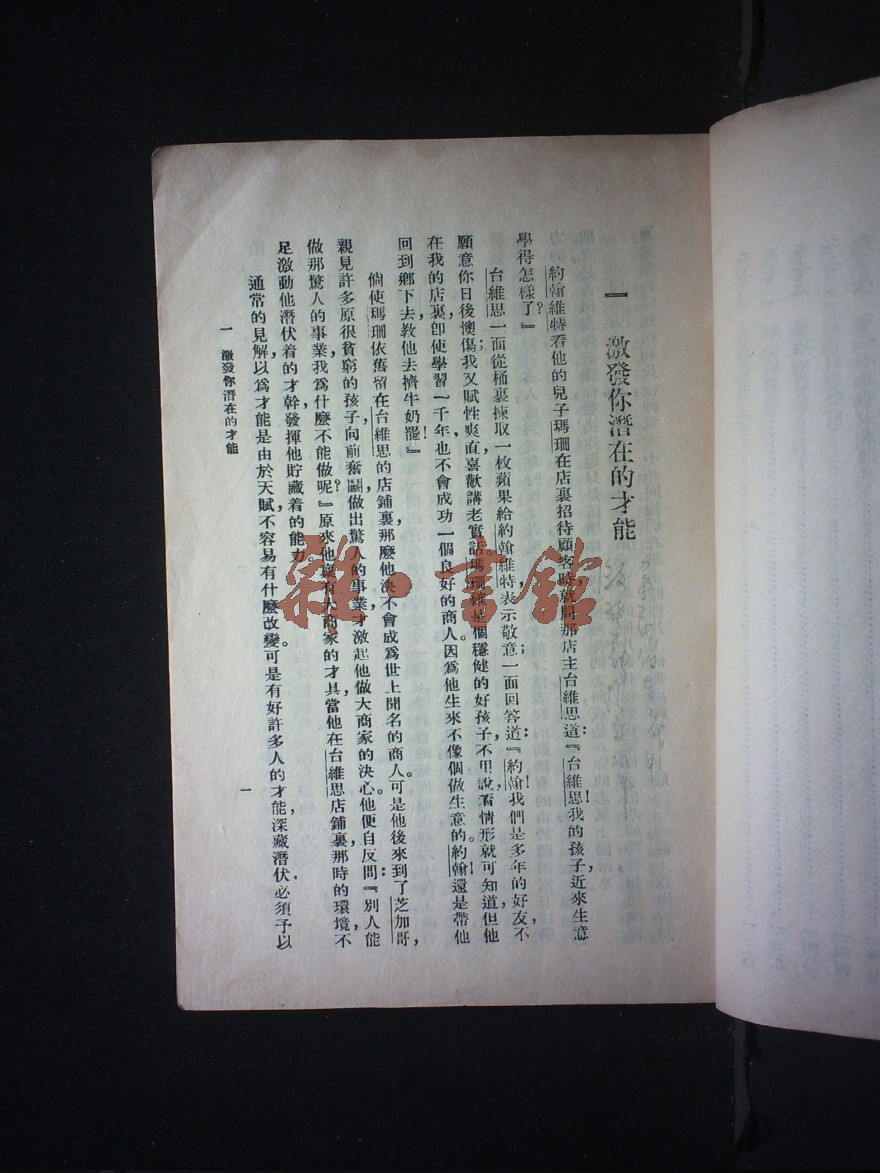 一　激發你潛在的才能
約翰維特看他的兒子瑪珊在店裏招待顧客時，就問那店主台維思道：『台維思！我的孩子近來生意
學得怎樣了？』
台維思一面從桶裏揀取一枚蘋果給約翰維特，表示敬意；一面回答道：『約翰！我們是多年的好友，不
願意你日後懊傷；我又賦性爽直，喜歡講老實話。瑪珊確是個穩健的好孩子，不用說，看情形就可知道。但他
在我的店裏，卽使學習一千年，也不會成功一個良好的商人。因爲他生來不像個做生意的。約翰！還是帶他
回到鄉下去，教他去擠牛奶罷！』
倘使瑪珊依舊留在台維思的店鋪裏，那麼他決不會成爲世上聞名的商人。可是他後來到了芝加哥，
親見許多原很貧窮的孩子，向前奮鬭，做出驚人的事業，才激起他做大商家的決心。他便自反問：『別人能
做那驚人的事業，我爲什麼不能做呢？』原來他稟有大商家的才具，當他在台維思店鋪裏那時的環境，不
足激動他潛伏着的才幹，發揮他貯藏着的能力。
通常的見解，以爲才能是由於天賦，不容易有什麼改變。可是有好許多人的才能，深藏潛伏，必須予以
一　激發你潛在的才能
一
雜·書館